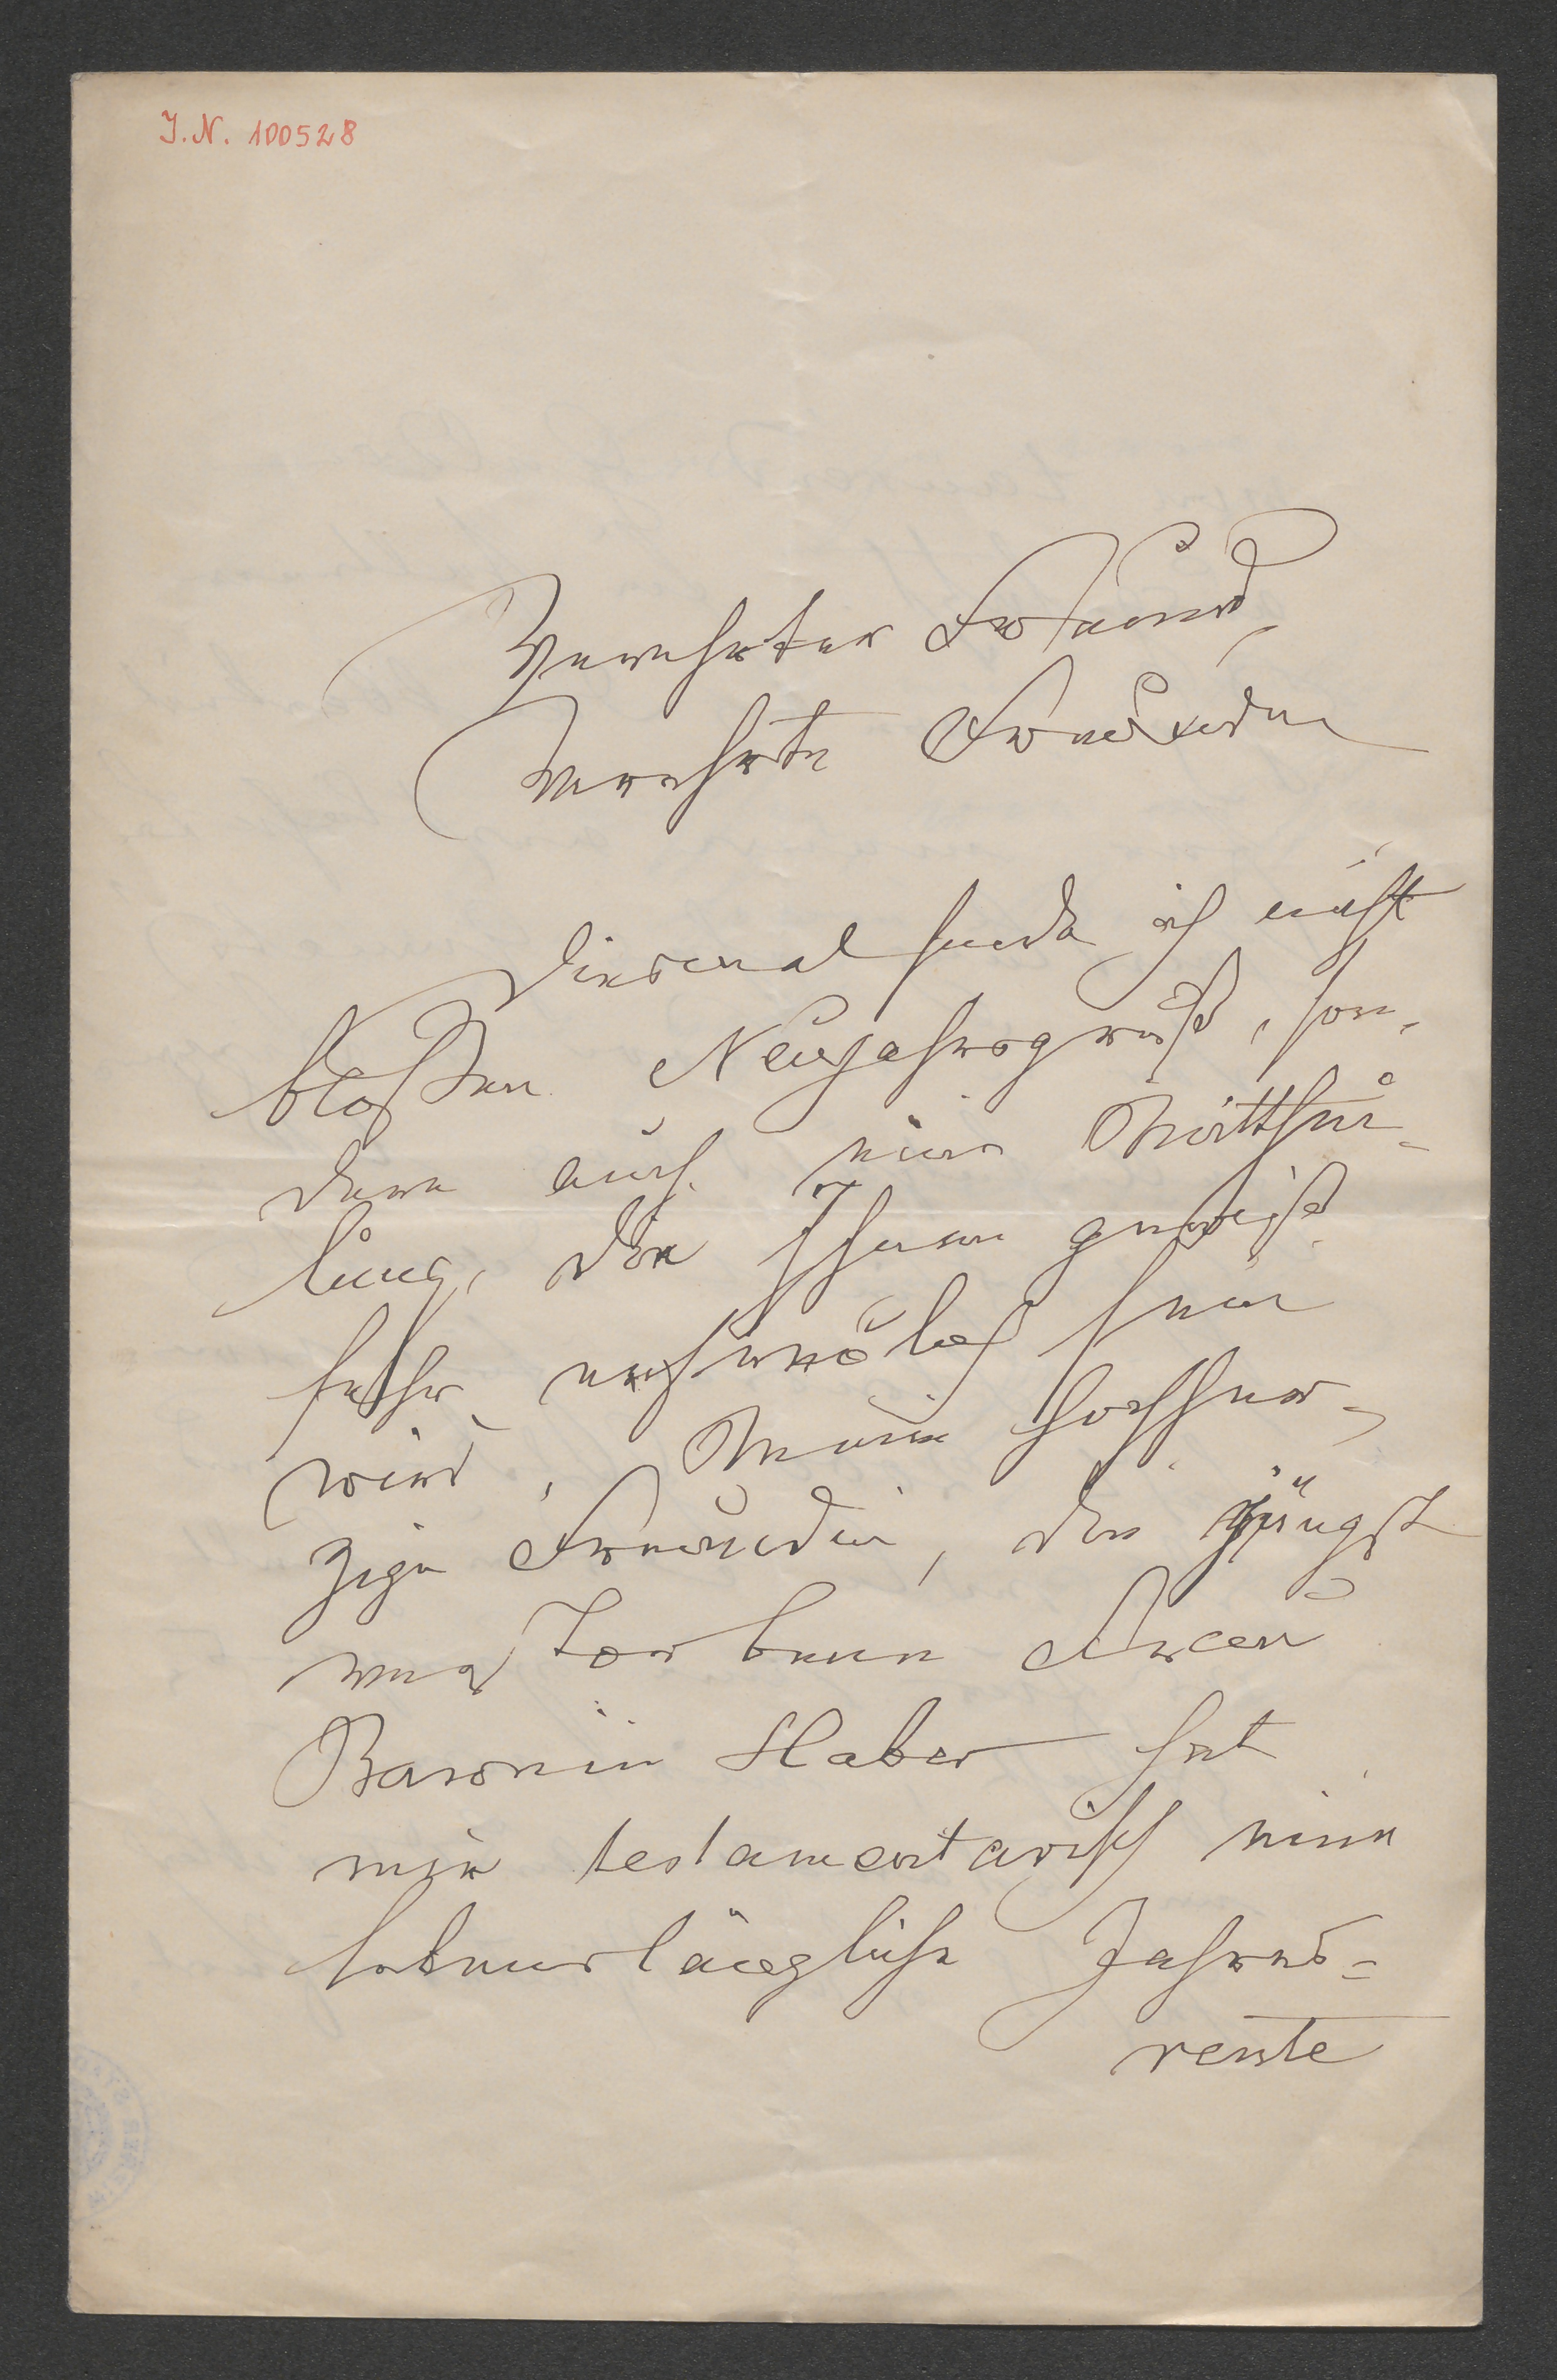 I.N. 100528
Verehrter Freund,
Verehrte Freundin
Diesmal sende ich nicht
bloßen Neujahrsgruß, son-
dern auch eine Mitthei-
lung, die Ihnen gewiß
sehr erfreulich sein
wird. Meine hochher-
zige Freundin, die jüngst
verstorbene Frau
Baronin Haber hat
mir testamentarisch eine
lebenslängliche Jahres=
rente